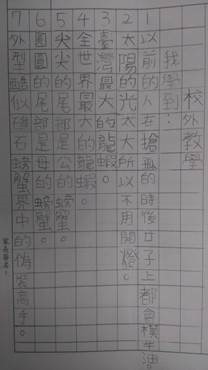 校外教學
我學到：
1 以前的人在搶孤的時後女子上都會模牛油
2 太陽的光太大所以不用開燈。
3 臺灣最大的龍蝦。
4 全世界最大的龍蝦。
5 尖尖的尾部是公的螃蟹。
6 圓圓的尾部是母的螃蟹。
7 外型酷似硓石螃蟹界中的偽裝高手。
家長簽名：